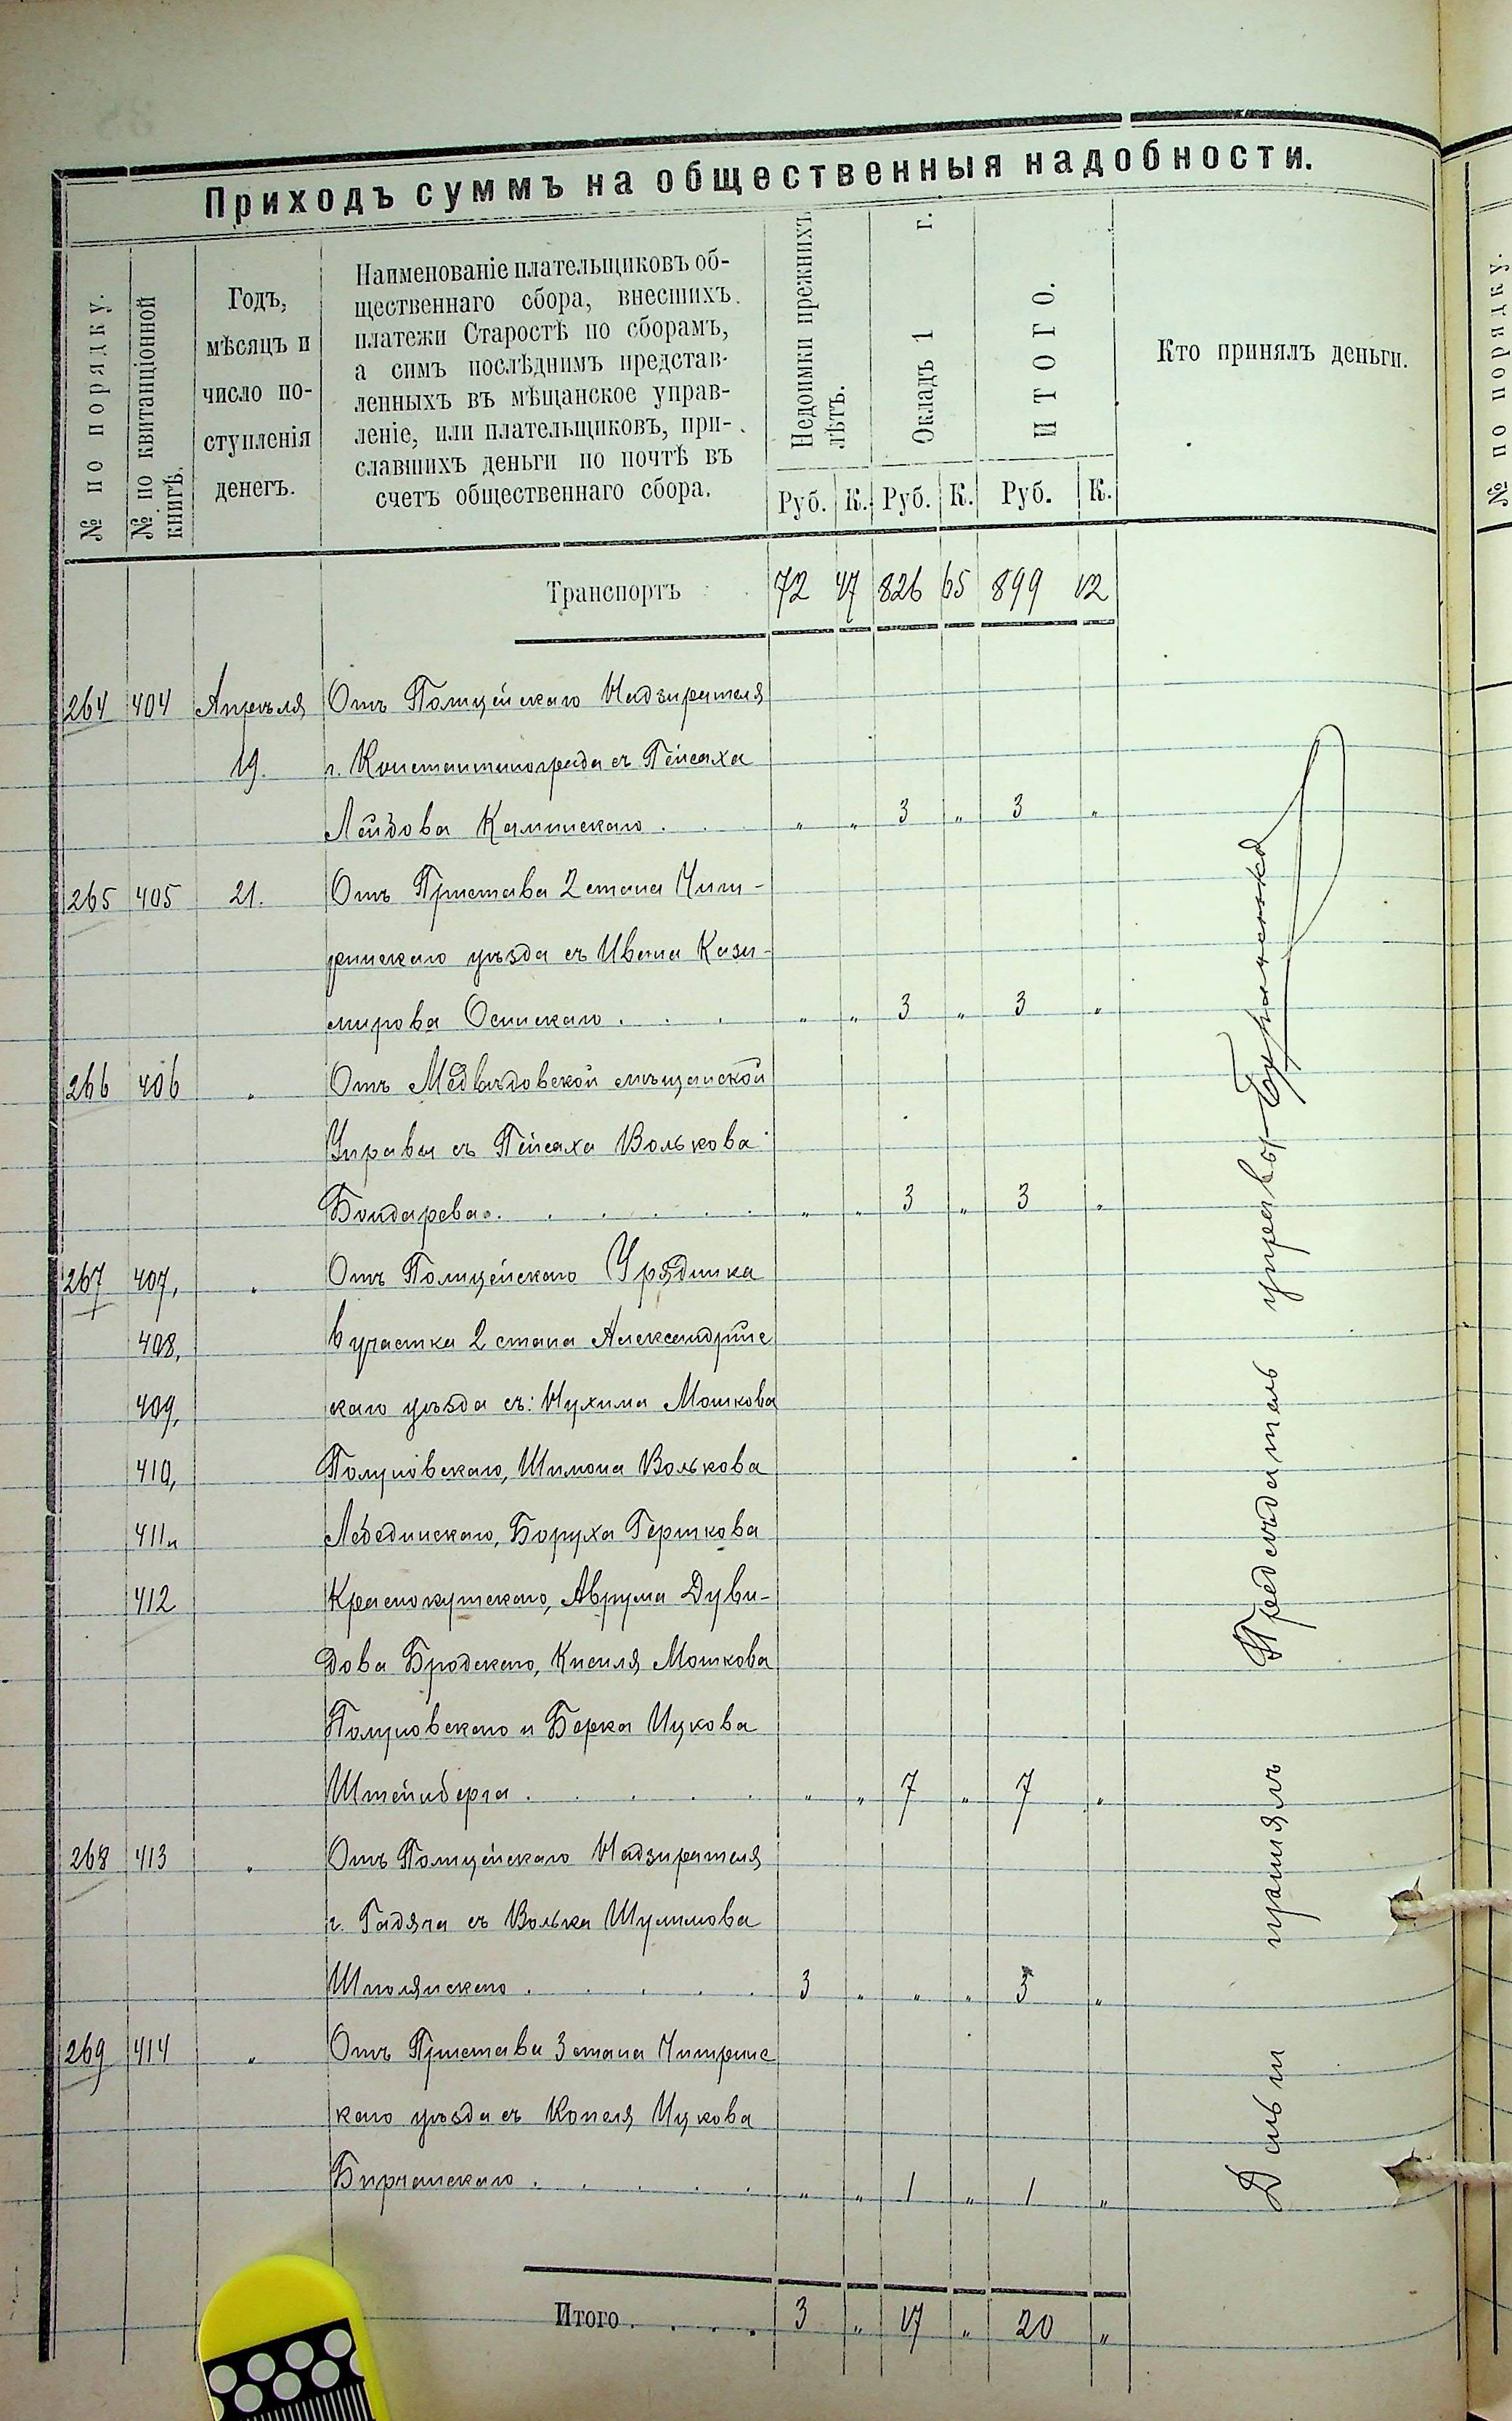 Приходъ суммъ на общественныя надобности.
№ по порядку.
№ по квитанціонной книгѣ.
Годъ, мѣсяцъ и число поступленія денегъ.
Наименованіе плательщиковъ об-
щественнаго сбора, внесшихъ
платежи Старостѣ по сборамъ,
а симъ послѣднимъ представ-
ленныхъ въ мѣщанское управ-
леніе, или плательщиковъ, при-
славшихъ деньги по почтѣ въ
счетъ общественнаго сбора.
Недоимки прежнихъ лѣтъ.
Окладъ 1 г.
ИТОГО.
Кто принялъ деньги.
Руб. К. Руб. К. Руб. К.
Транспортъ 72 47 826 65 899 12
264 404 Апрѣля Отъ Полицейскаго Надзирателя
19. г. Константинограда съ Пейсаха
Лейзова Каминскаго . . . „ „ 3 „ 3 „
265 405 21. Отъ Пристава 2 стана Чиги-
ринскаго уѣзда съ Ивана Кази-
мирова Осинскаго . . . „ „ 3 „ 3 „
266 406 „ Отъ Медвѣдовской мѣщанской
Управы съ Пейсаха Волькова
Бондарева . . . . . . „ „ 3 „ 3 „
267 407, „ Отъ Полицейскаго Урядника
408, 6 участка 2 стана Александрійс
409, каго уѣзда съ: Нухима Мошкова
410, Полуновскаго, Шимона Волькова
411 и Лебединскаго, Боруха Гершкова
412 Краснокутскаго, Аврума Дуви-
дова Бродскаго, Кисиля Мошкова
Полуновскаго и Берка Ицкова
Штейнберга . . . . . „ „ 7 „ 7 „
268 413 „ Отъ Полицейскаго Надзирателя
г. Гадяча съ Волька Шулимова
Шполянскаго . . . . . 3 „ „ „ 3 „
269 414 „ Отъ Пристава 3 стана Чигринс
каго уѣзда съ Копеля Ицкова
Бирчанскаго . . . . . „ „ 1 „ 1 „
Итого . . . . 3 „ 17 „ 20 „
принялъ Предсѣдатель управы
№ по порядку.